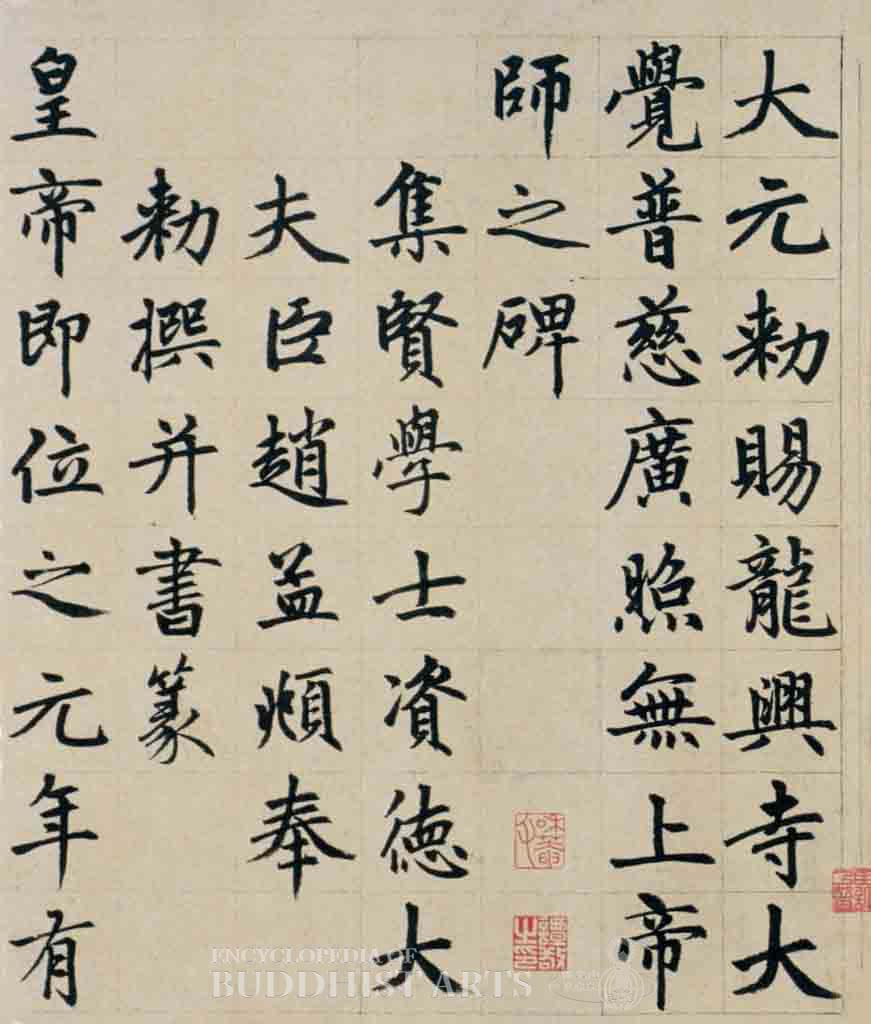 大元勑賜龍興寺大
覺普慈廣照無上帝
師之碑
集賢學士資德大
夫臣趙孟頫奉
勑撰并書篆
皇帝即位之元年有
ENCYCLOPEDIA OF
BUDDHIST ARTS